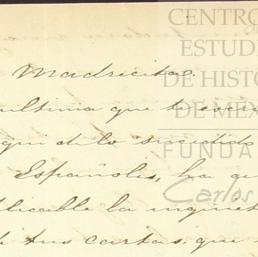 CENTRO
ESTUDI
DE HISTO
DE MÉX
FUNDA
Carlos
Madrecita:
ultima que te escri
que de lo sucedido
Españoles, ha qu
plicable la inquiet
tus cartas, que